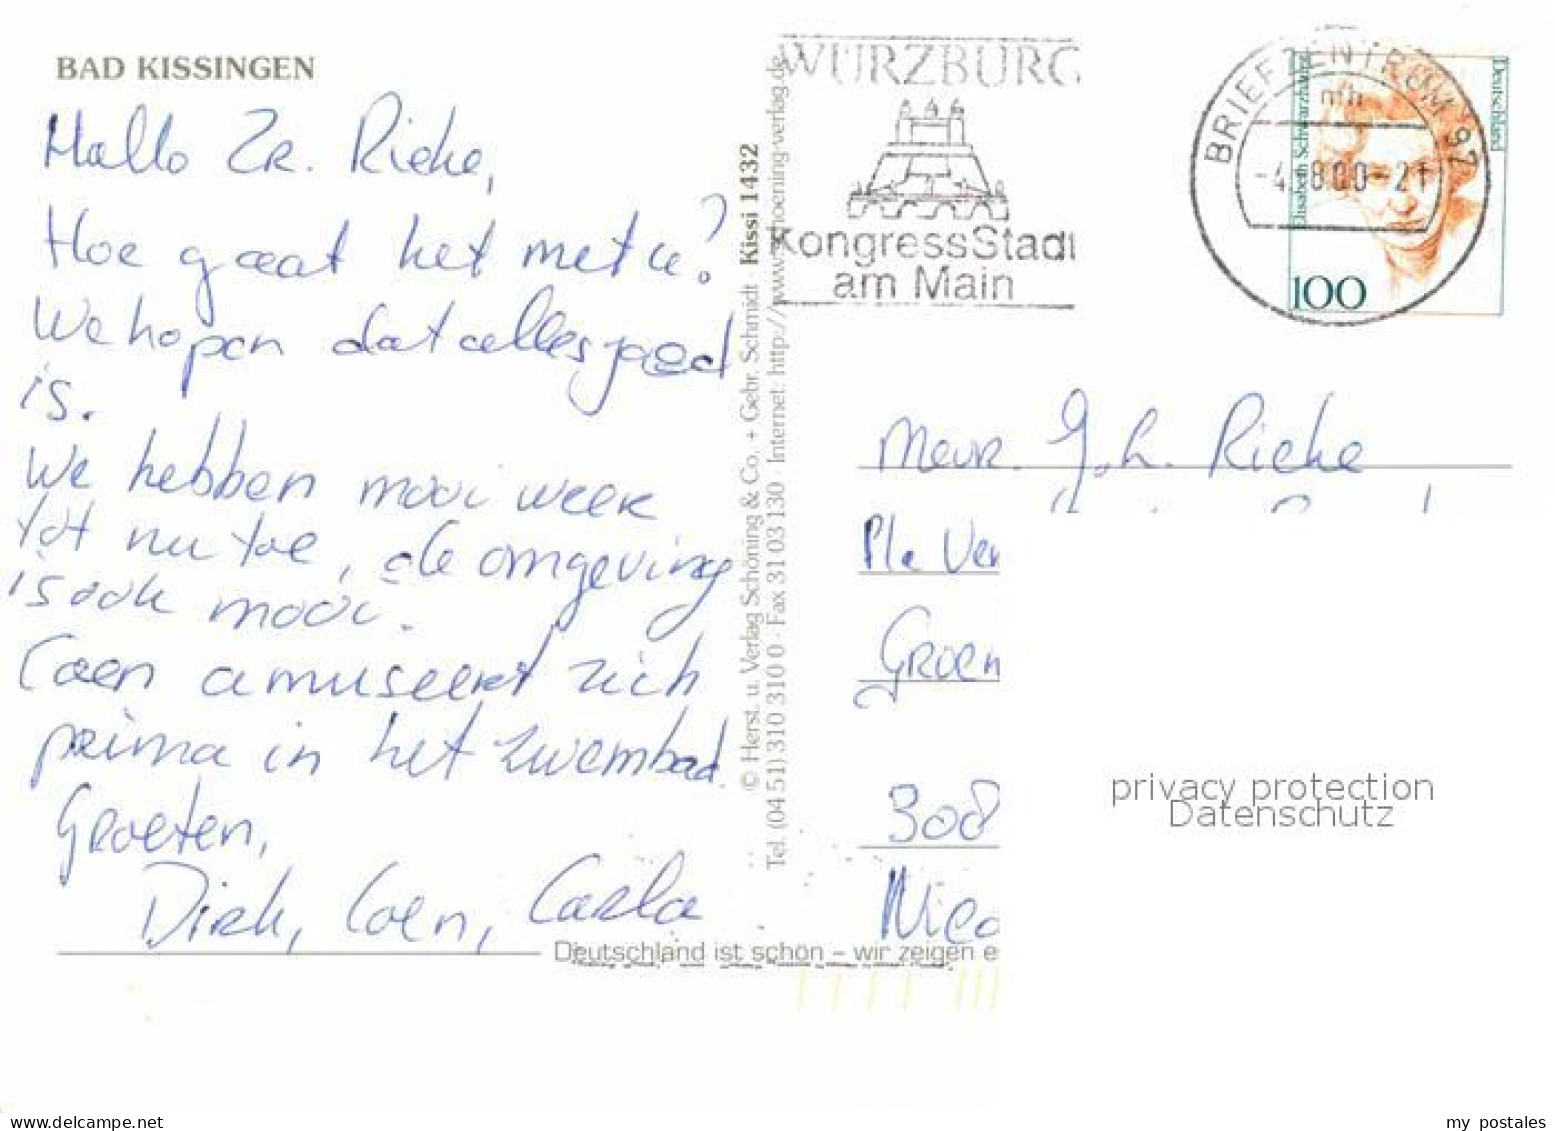 BAD KISSINGEN
Hallo Zr. Rieke,
Hoe gaat het met u?
We hopen dat alles goed
is.
We hebben mooi weer
tot nu toe, de omgeving
is ook mooi.
Coen amuseert zich
prima in het zwembad.
Groeten,
Dirk, Coen, Carla
© Herst. u. Verlag Schöning & Co. + Gebr. Schmidt · Kissi 1432
Tel. (04 51) 310 310 0 · Fax 31 03 130 · Internet: http://www.schoening-verlag.de
WÜRZBURG
KongressStadt
am Main
BRIEFZENTRUM 97
mh
-4.-8.00-21
Elisabeth Schwarzhaupt
Deutschland
100
Mevr. J.h. Rieke
Pla Ver
Groen
308
privacy protection
Datenschutz
Deutschland ist schön – wir zeigen e
my postales